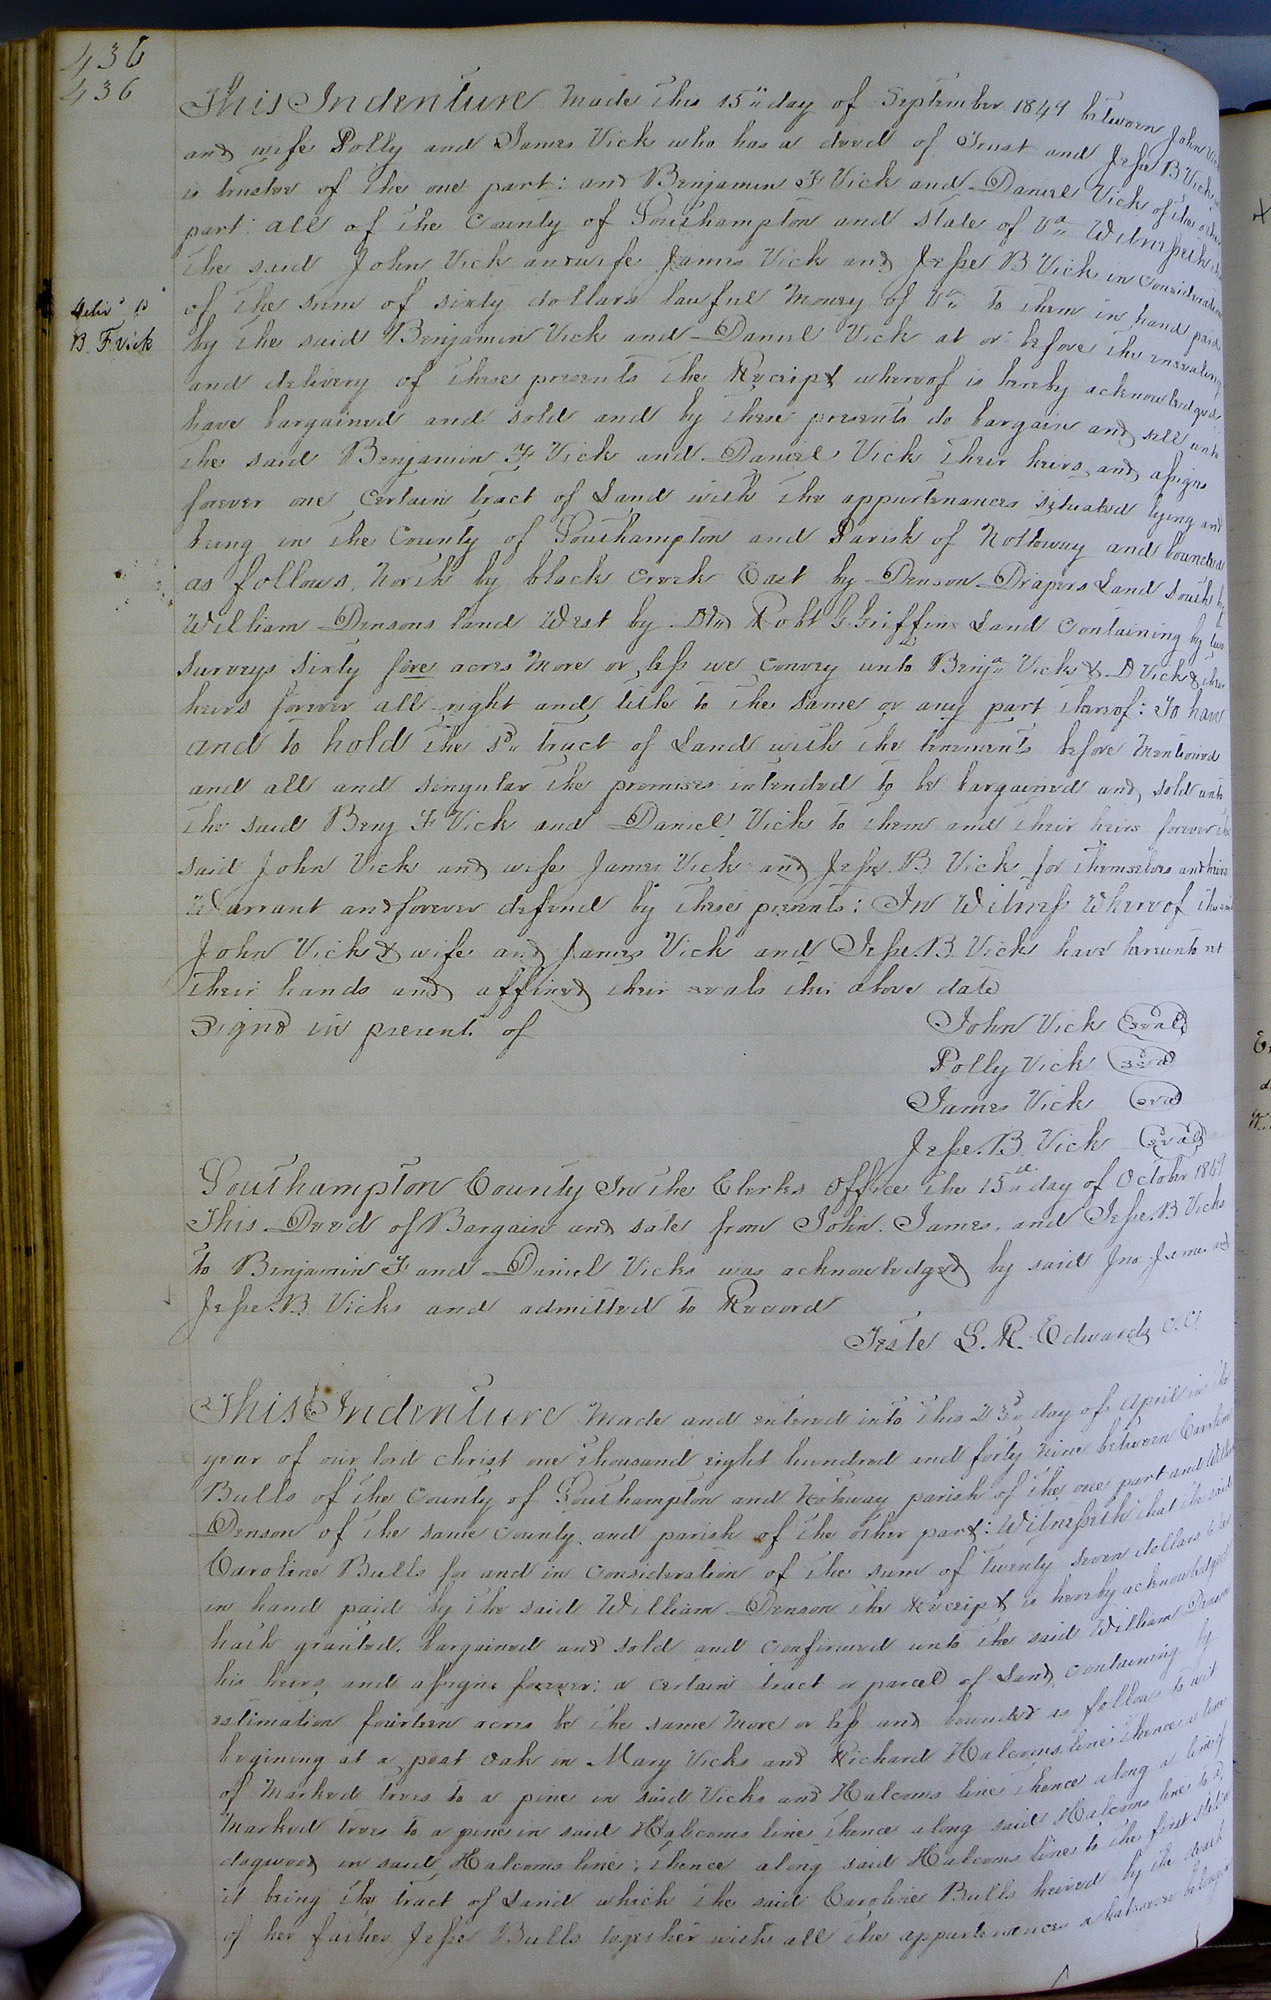 436
436
This Indenture Made this 15" day of September 1849 between John Vick
and wife Polly and James Vick who has a deed of Trust and Jesse B Vick
is trustee of the one part: and Benjamin F Vick and Daniel Vick of the other
part: all of the County of Southampton and State of Va Witnesseth
the said John Vick and wife James Vick and Jesse B Vick in consideration
of the sum of sixty dollars lawful Money of Va to them in hand paid
Deliv'd to
B. F Vick
by the said Benjamin Vick and Daniel Vick at or before the ensealing
and delivery of these presents the Receipt whereof is hereby acknowledged
have bargained and sold and by these presents do bargain and sell unto
the said Benjamin F Vick and Daniel Vick their heirs and assigns
forever one certain tract of Land with the appurtenances situated lying and
being in the County of Southampton and Parish of Nottoway and bounded
as follows, North by black Creek East by Denson Drapers Land South by
William Densons land West by Robt G Griffins Land Containing by
surveys sixty five acres More or less we convey unto Benja Vick & D Vick & their
heirs forever all right and title to the same or any part thereof: To have
and to hold the sd tract of Land with the tenements before Mentioned
and all and singular the premises intended to be bargained and sold unto
the said Benj F Vick and Daniel Vick to them and their heirs forever the
said John Vick and wife James Vick and Jesse B Vick for themselves and heirs
Warrant and forever defend by these presents: In Witness Whereof the said
John Vick & wife and James Vick and Jesse. B. Vick have hereunto set
their hands and affixed their seals this above date
Signd in present of John Vick (Seal)
Polly Vick (Seal)
James Vick (Seal)
Jesse. B. Vick (Seal)
Southampton County In the Clerks office the 15th day of October 1849
This Deed of Bargain and sale from John. James. and Jesse. B Vicks
to Benjamin F and Daniel Vicks was acknowledged by said Jno James and
Jesse. B. Vicks and admitted to Record
Teste L. R. Edwards C.C.
This Indenture Made and entered into this 23d day of April in the
year of our lord Christ one thousand eight hundred and forty Nine between Caroline
Bulls of the County of Southampton and Notoway parish of the one part and William
Denson of the same County and parish of the other part: Witnesseth that the said
Caroline Bulls for and in consideration of the sum of twenty seven dollars to her
in hand paid by the said William Denson the Receipt is hereby acknowledged
hath granted, bargained and sold and confirmed unto the said William Denson
his heirs and assigns forever: a certain tract or parcel of Land containing by
estimation fourteen acres be the same More or less and bounded as follows to wit
begining at a post oak in Mary Vicks and Richard Halcoms line thence a line
of Marked trees to a pine in said Vicks and Halcoms line thence along a line of
Marked trees to a pine in said Halcoms line thence along said Halcoms line to a
dogwood in said Halcoms line: thence along said Halcoms line to the first station
it being the tract of Land which the said Caroline Bulls heired by the death
of her father Jesse Bulls together with all the appurtenances whatsoever belonging